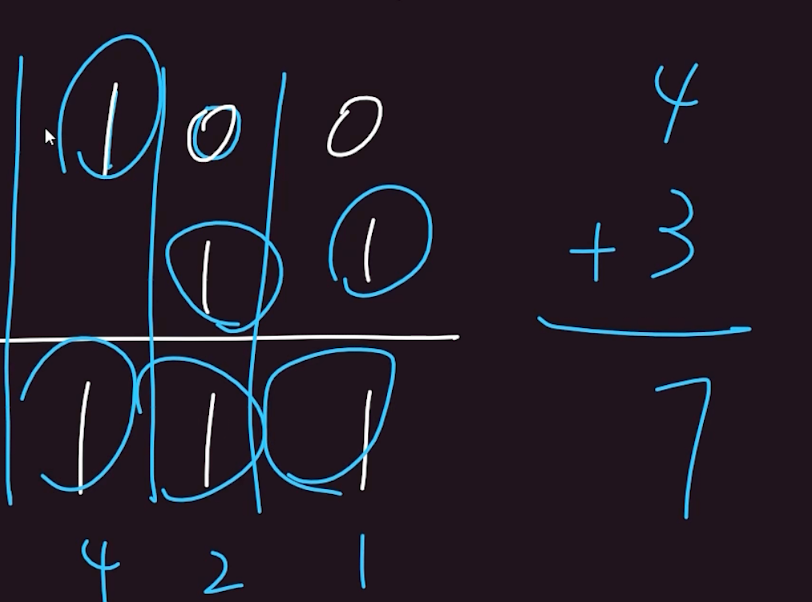 1 0 0
1 1
1 1 1
4 2 1
4
+ 3
7